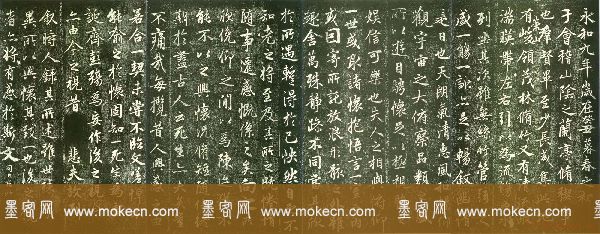 永和九年歲在癸丑暮春之初
于會稽山陰之蘭亭脩禊
也羣賢畢至少長咸集
有崇領茂林脩竹又有清
湍暎帶左右引以為流
列坐其次雖無絲竹管
盛一觴一詠亦足以暢敘
是日也天朗氣清惠風和
觀宇宙之大俯察品類
所以遊目騁懷足以極視
娛信可樂也夫人之相與俯仰
一世或取諸懷抱悟言一
或因寄所託放浪形骸
趣舍萬殊靜躁不同當
於所遇蹔得於己怏然自
知老之將至及其所之既惓情
隨事遷感慨係之矣向
俛仰之間以為陳
能不以之興懷況脩短
期於盡古人云死生
不痛哉每攬昔人興
若合一契未嘗不臨文嗟悼
能喻之於懷固知一死生為
誕齊彭殤為妄作後之視
亦由今之視昔 悲夫
敘時人錄其所述雖世
異所以興懷其致一也後
者亦將有感於斯文
墨客网 www.mokecn.com 墨客网 www.mokecn.com 墨客网 www.mokecn.com